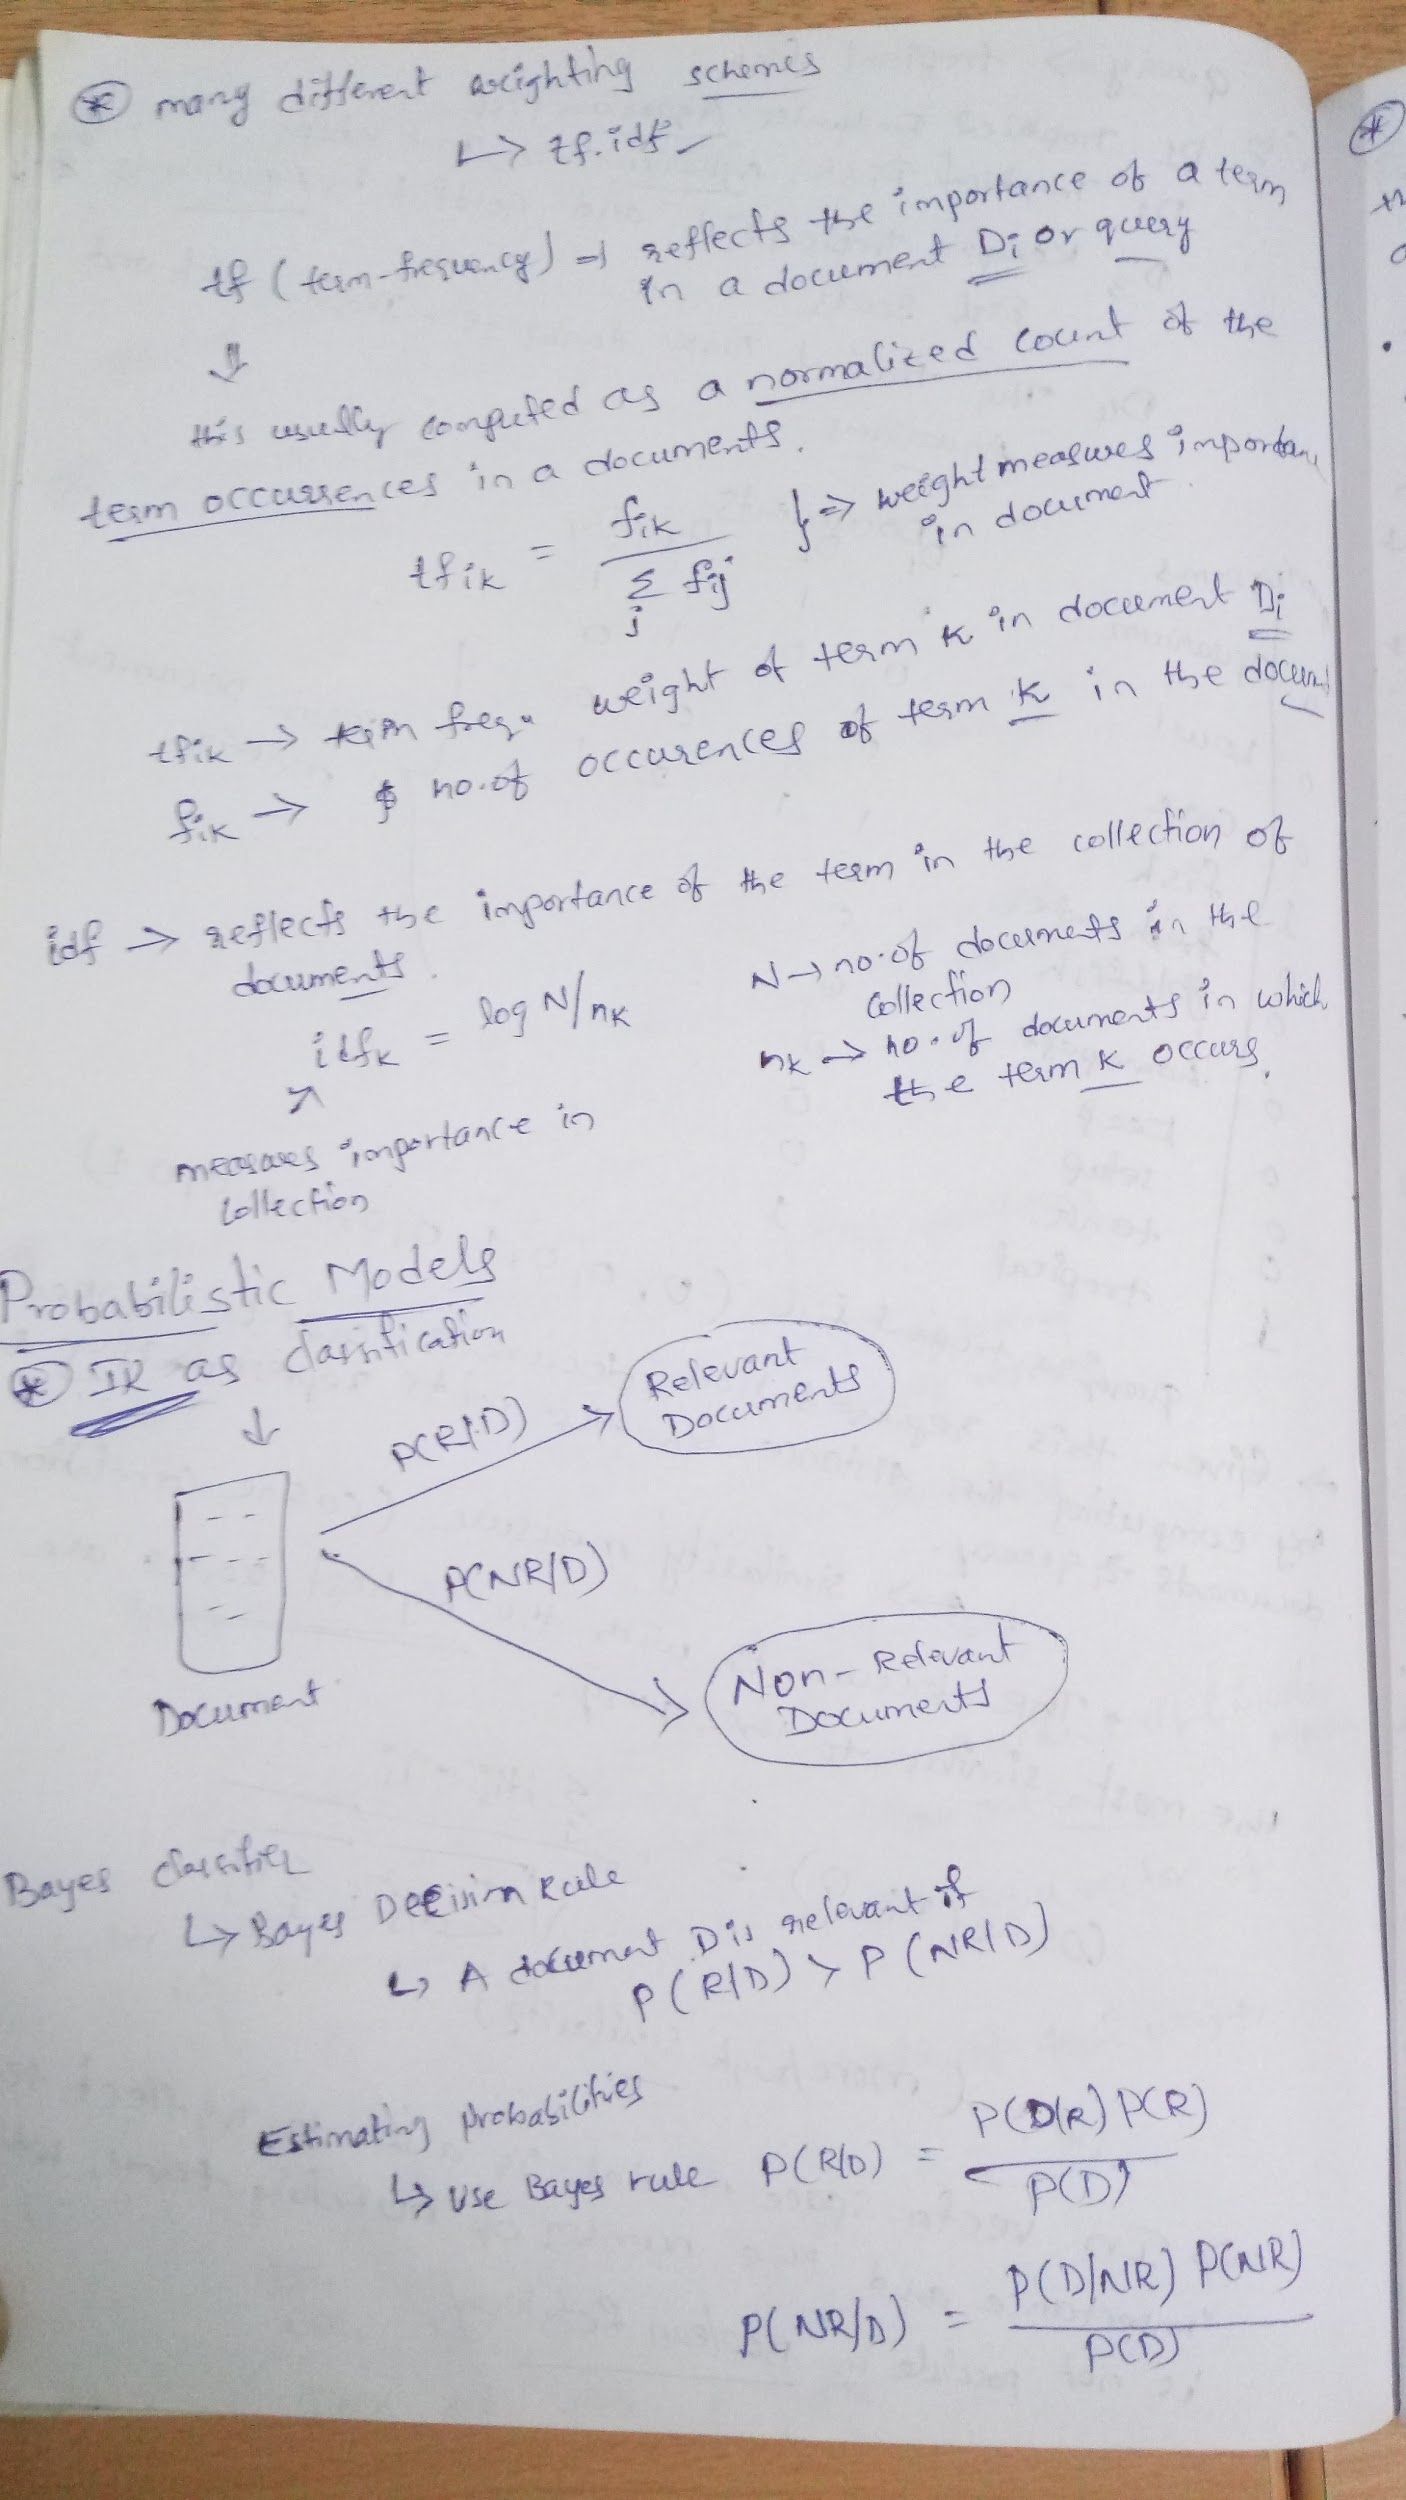 * many different weighting schemes
↳ tf.idf
tf (term-frequency) ⇒ reflects the importance of a term
in a document Di or query
⇓
this usually computed as a normalized count of the
term occurrences in a documents.
tfik = fik / Σj fij } ⇒ weight measures importan
in document.
tfik → term freq. weight of term k in document Di
fik → no. of occurences of term k in the docum
idf → reflects the importance of the term in the collection of
documents.
idfk = log N/nk
N → no. of documents in the
collection
nk → no. of documents in which
the term k occurs.
measures importance in
collection
Probabilistic Models
* IR as classification
P(R/D)
Relevant
Documents
P(NR/D)
Non-Relevant
Documents
Document
Bayes classifier
↳ Bayes Decision Rule
↳ A document D is relevant if
P(R/D) > P(NR/D)
Estimating probabilities
↳ Use Bayes rule P(R/D) = P(D/R) P(R) / P(D)
P(NR/D) = P(D/NR) P(NR) / P(D)